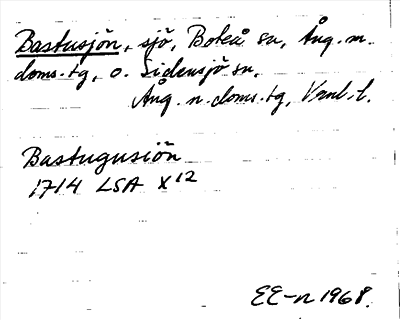 Bastusjön, sjö, Boteå sn, Ång. m.
doms.tg, o. Sidensjö sn,
Ång. n. doms.tg, Vnl. l.
Bastugusiön
1714 LSA X12
EE-n 1968.